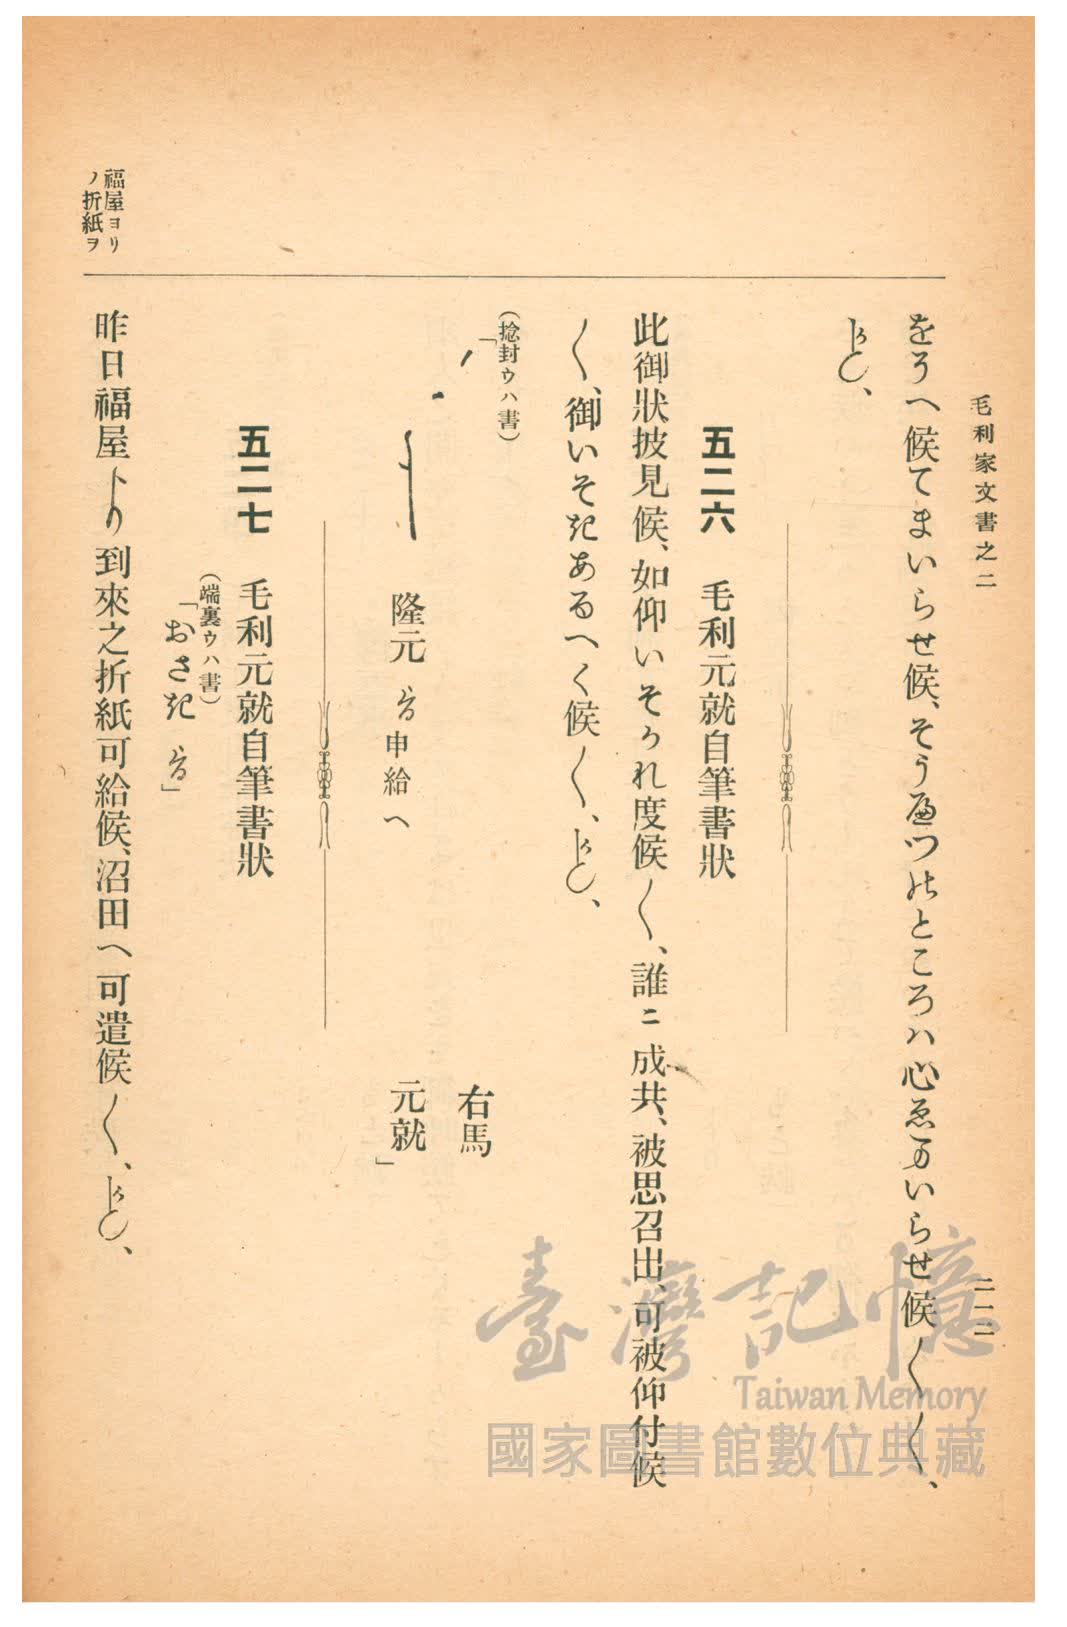 毛利家文書之二
二二二
をうへ候てまいらせ候、そう〳〵のところハ心ゑまいらせ候〳〵〳〵、
かしく、
五二六　毛利元就自筆書狀
此御狀披見候、如仰いそかれ度候〳〵、誰ニ成共、被思召出、可被仰付候
〳〵、御いそきあるへく候〳〵、かしく、
（捻封ウハ書）
「
右馬
隆元　　申給へ　元就」
五二七　毛利元就自筆書狀
（端裏ウハ書）
「おさき　　」
福屋ヨリ
ノ折紙ヲ
昨日福屋より到來之折紙可給候、沼田へ可遣候〳〵、かしく、
臺灣記憶
Taiwan Memory
國家圖書館數位典藏